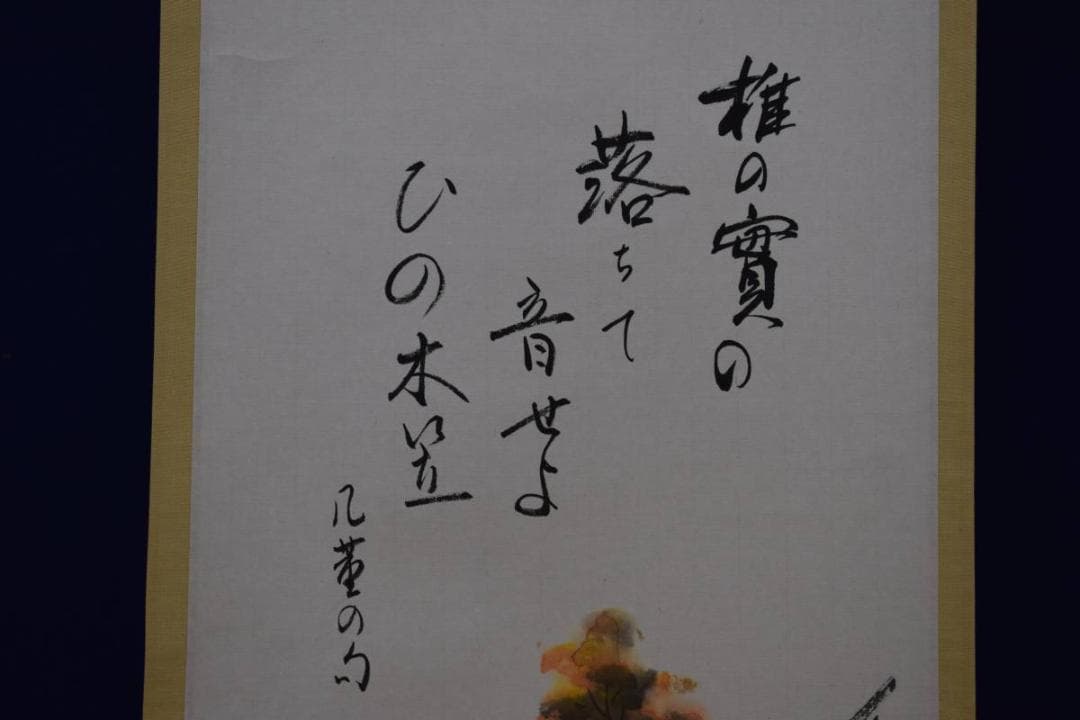 椎の實の
落ちて
音せよ
ひの木笠
几董の句